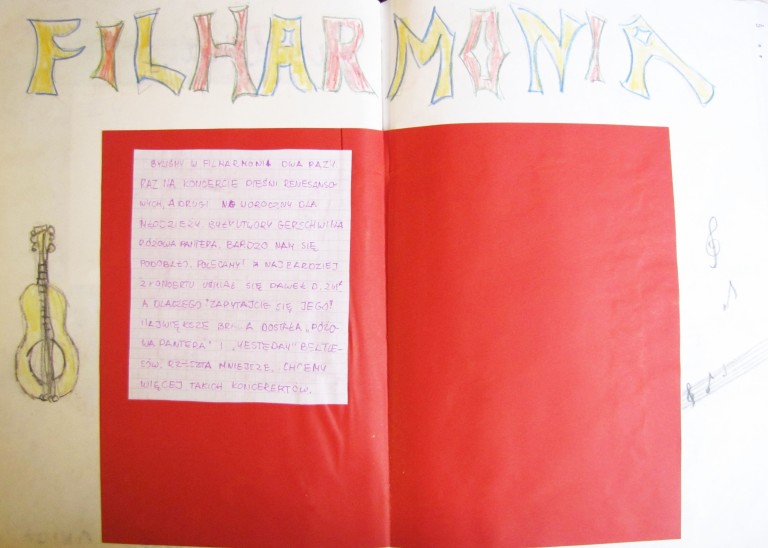 FILHARMONIA
BYLIŚMY W FILHARMONII DWA RAZY.
RAZ NA KONCERCIE PIEŚNI RENESANSO-
WYCH, A DRUGI NOWOROCZNY DLA
MŁODZIEŻY BYŁY UTWORY GERSCHWINA
RÓŻOWA PANTERA. BARDZO NAM SIĘ
PODOBAŁO. POLECAMY! NAJBARDZIEJ
Z KONCERTU UŚMIAŁ SIĘ PAWEŁ D.
A DLACZEGO "ZAPYTAJCIE SIĘ JEGO!"
NAJWIĘKSZE BRAWA DOSTAŁA „RÓŻO-
WA PANTERA" I „YESTERDAY" BEATLE-
SÓW. RESZTA MNIEJSZE. CHCEMY
WIĘCEJ TAKICH KONCERTÓW.